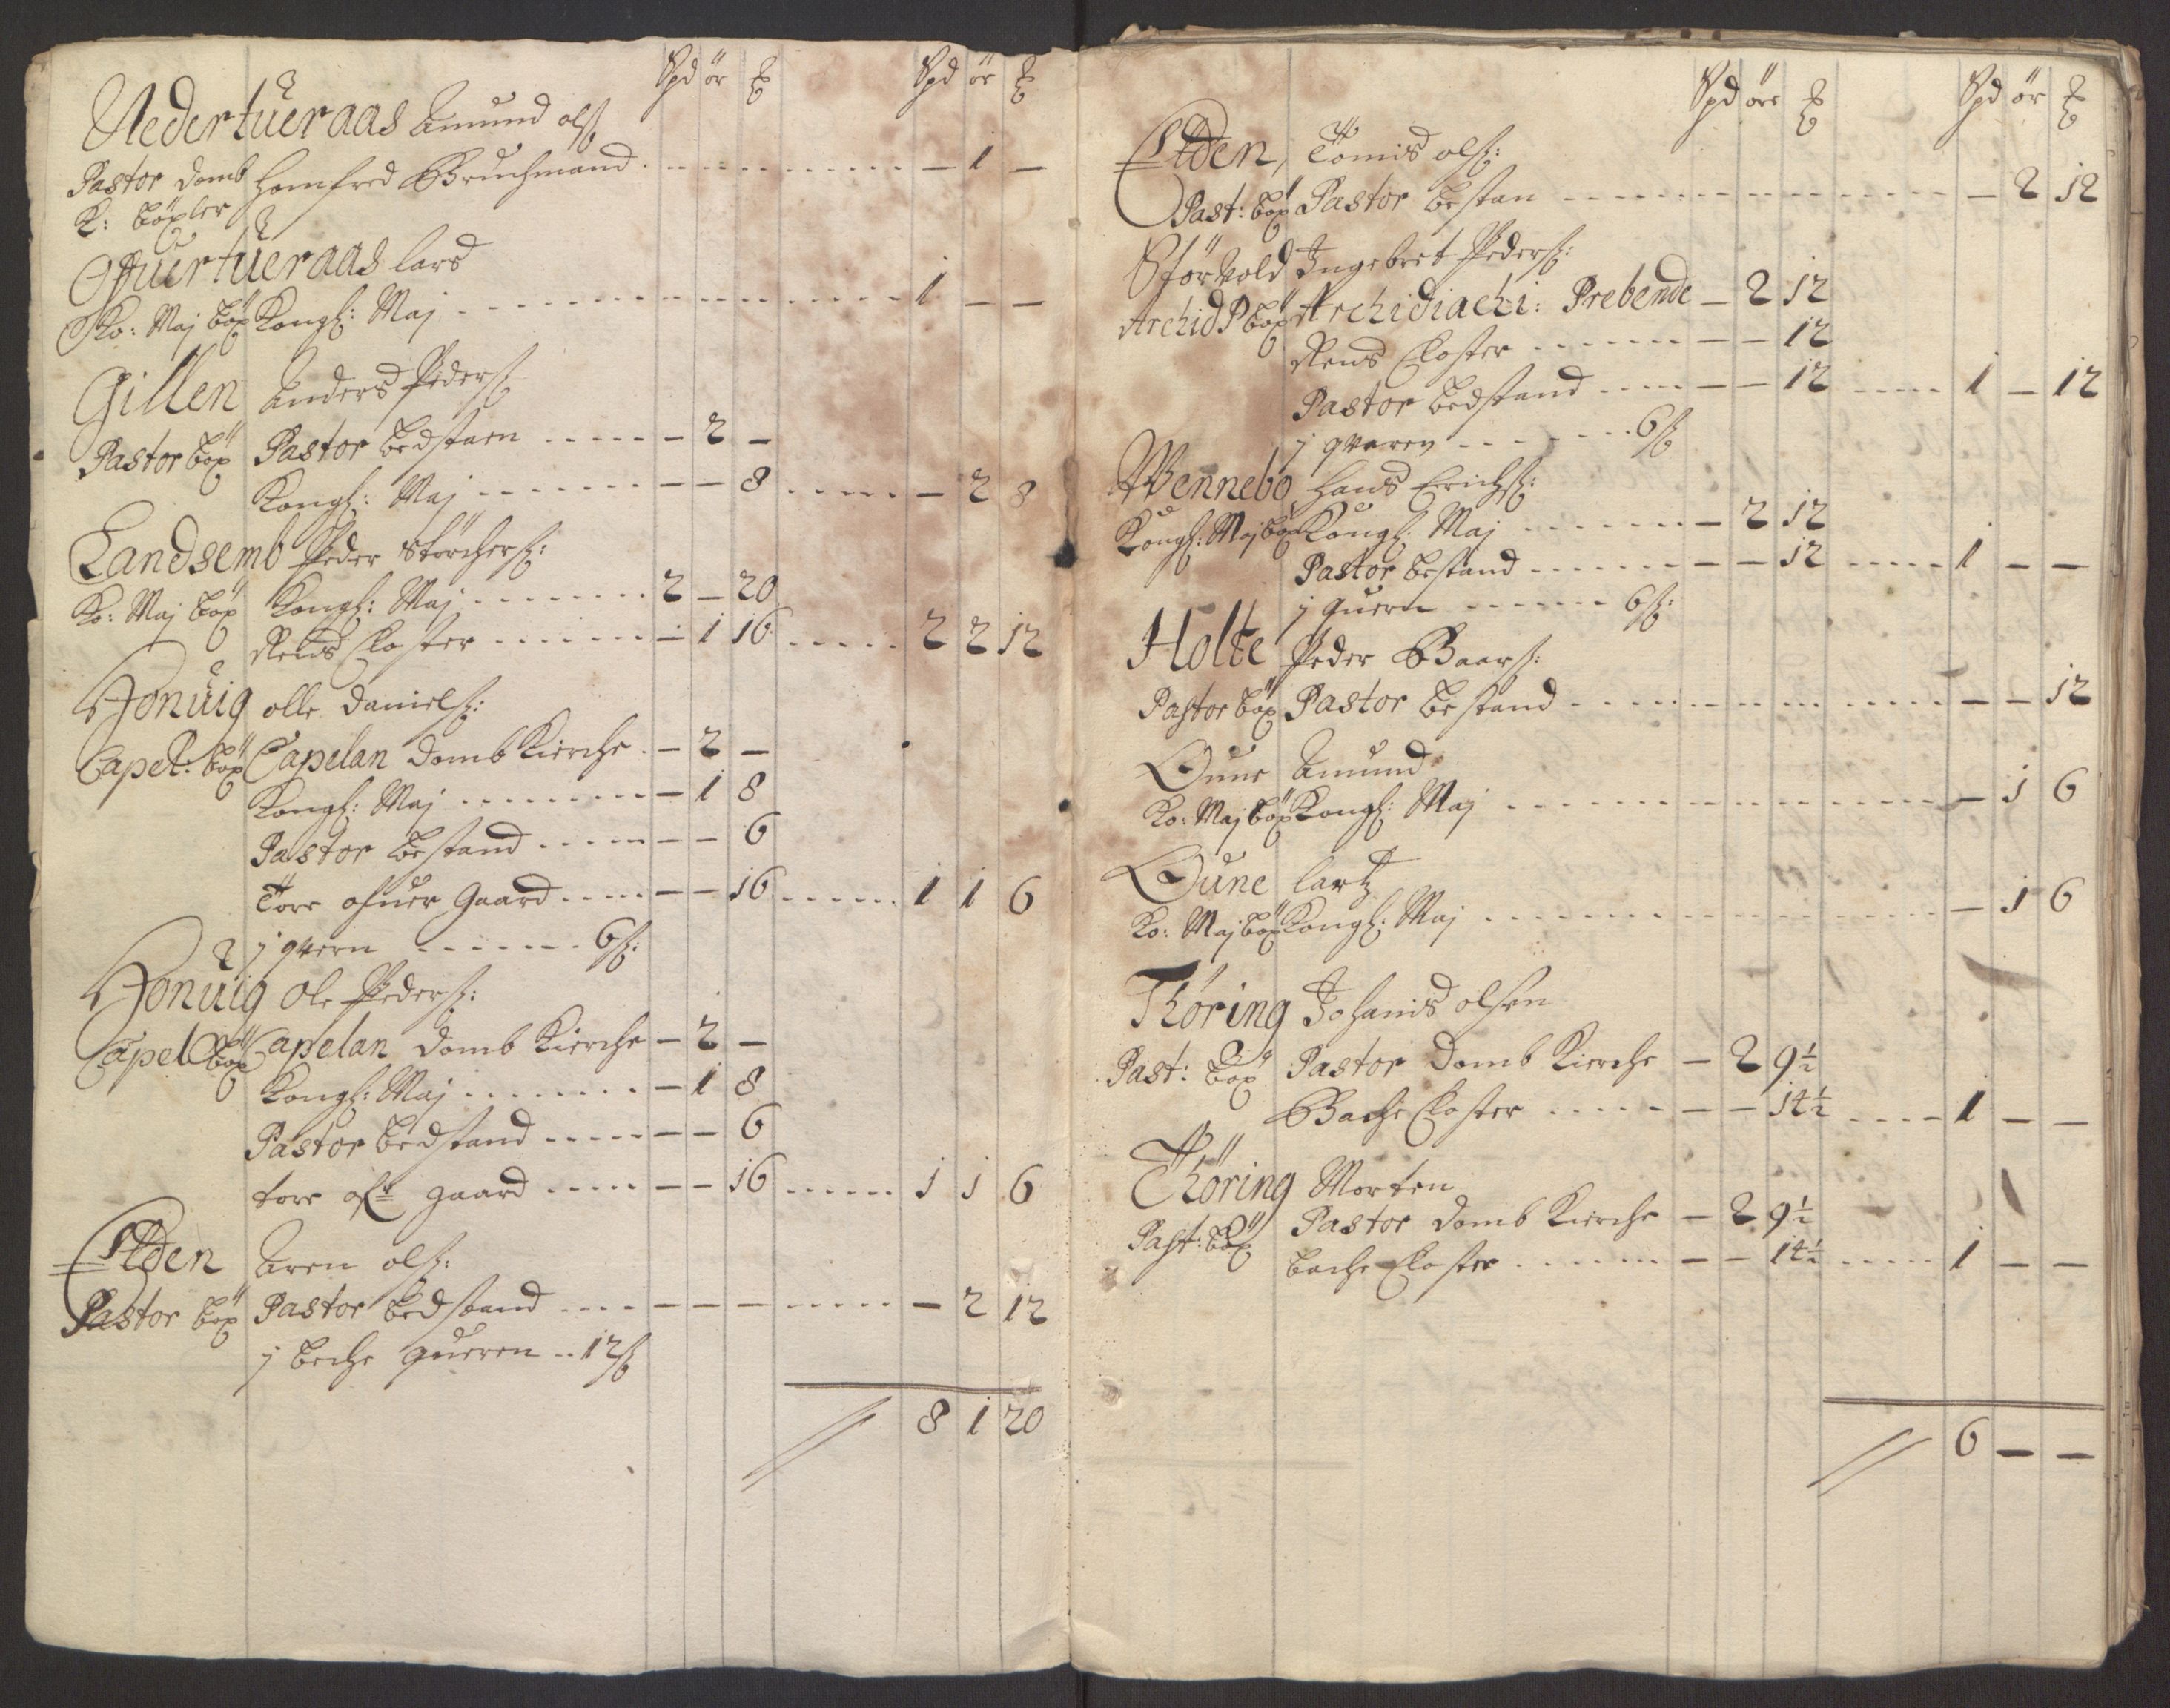 Spd ör ℔ Spd ör ℔
Nedertueraas Amund ols:
Pastor Domb Homfred Bruchmand - 1 -
K: böxler
Offuertueraas Lars
Ko: Maj böx Kongl: Maj 1 - -
Gillen Anders Peders:
Pastor böx Pastor bedstaen - 2 -
Kongl: Maj - - 8 - 2 8
Landsemb Peder Störchers:
Ko: Maj böx Kongl: Maj 2 - 20
Rens Closter - 1 16 2 2 12
Honuig Olle Daniels:
Capel: böx Capelan Domb Kierche - 2 -
Kongl: Maj - 1 8
Pastor bestand - - 6
Tore ofuer Gaard - - 16 1 1 6
j qvern 6 s:
Honuig Ole Peders:
Capel böx Capelan Domb Kierche - 2 -
Kongl: Maj - 1 8
Pastor bedstand - - 6
tore ofr gaard - - 16 1 1 6
Elden Aren ols:
Pastor böx Pastor bedstand - - - - 2 12
j beche queren 12 s
8 1 20
Spd öre ℔ Spd ör ℔
Elden, Tomis ols:
Past: böx Pastor bestan - 2 12
Störvold Ingebret Peders:
Archid P böx Archidiachi: Prebende - 2 12
Rens Closter - - 12
Pastor bedstand - - 12 1 - 12
j qveren 6 s
Wennebo Hans Erichs:
Kongl: Maj böx Kongl: Maj - 2 12
Pastor bestand - - 12 1 - -
j quern 6 s:
Holte Peder Baars:
Pastor böx Pastor bestand - - 12
Oune Amund
Ko: Maj böx Kongl: Maj - 1 6
Oune Lartz
Ko: Maj böx Kongl: Maj - 1 6
Thöring Johanis olsen
Past: böx Pastor Domb Kierche - 2 9½
Bache Closter - - 14½ 1 - -
Thöring Morten
Past: böx Pastor Domb Kierche - 2 9½
bache Closter - - 14½ 1 - -
6 - -